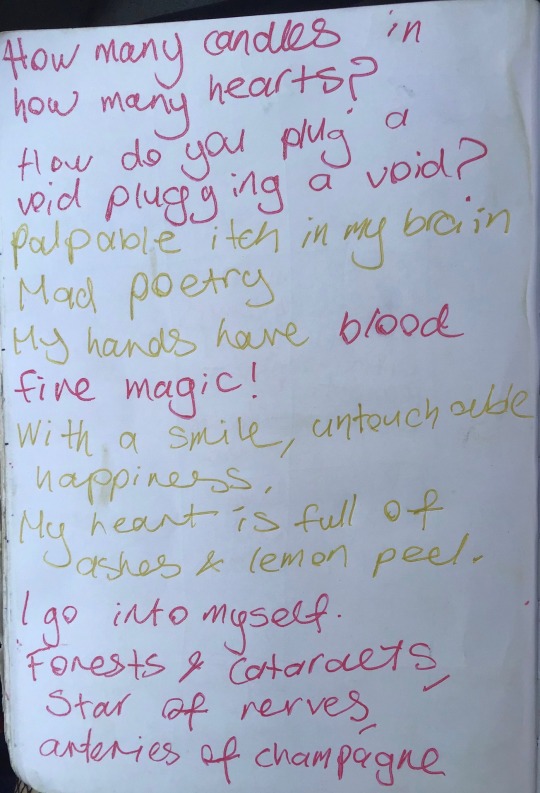 How many candles in
how many hearts?
How do you plug a
void plugging a void?
Palpable itch in my brain
Mad poetry
My hands have blood
fire magic!
With a smile, untouchable
happiness.
My heart is full of
ashes & lemon peel.
I go into myself.
Forests & cataracts,
Star of nerves,
arteries of champagne